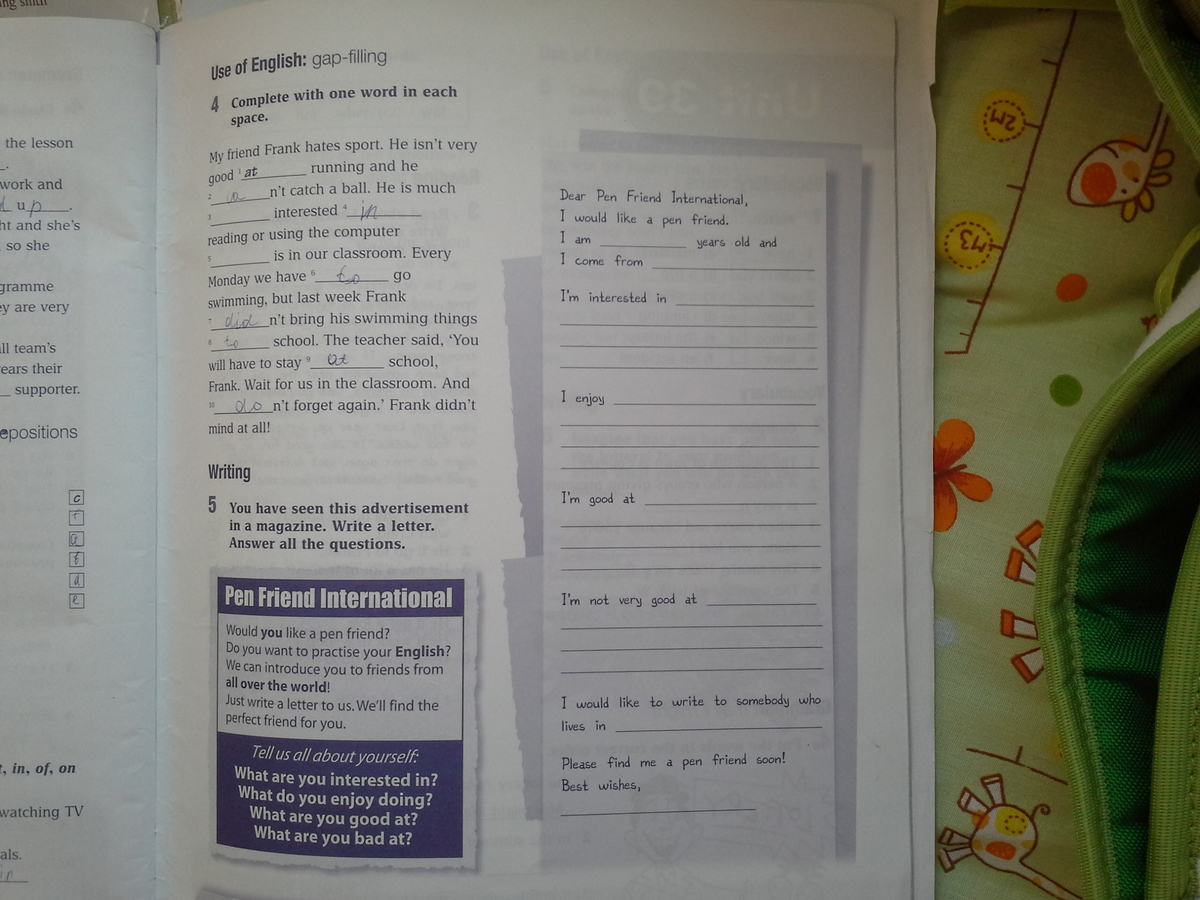 ng smith
the lesson
work and
up
ht and she's
so she
gramme
ey are very
all team's
ears their
supporter.
epositions
c
f
a
t
d
e
t, in, of, on
watching TV
als.
in
Use of English: gap-filling
4 Complete with one word in each
space.
My friend Frank hates sport. He isn't very
good ¹ at running and he
² n't catch a ball. He is much
³ interested ⁴ in
reading or using the computer
⁵ is in our classroom. Every
Monday we have ⁶ to go
swimming, but last week Frank
⁷ did n't bring his swimming things
⁸ to school. The teacher said, 'You
will have to stay ⁹ at school,
Frank. Wait for us in the classroom. And
¹⁰ do n't forget again.' Frank didn't
mind at all!
Writing
5 You have seen this advertisement
in a magazine. Write a letter.
Answer all the questions.
Pen Friend International
Would you like a pen friend?
Do you want to practise your English?
We can introduce you to friends from
all over the world!
Just write a letter to us. We'll find the
perfect friend for you.
Tell us all about yourself:
What are you interested in?
What do you enjoy doing?
What are you good at?
What are you bad at?
Dear Pen Friend International,
I would like a pen friend.
I am years old and
I come from
I'm interested in
I enjoy
I'm good at
I'm not very good at
I would like to write to somebody who
lives in
Please find me a pen friend soon!
Best wishes,
2M
3M